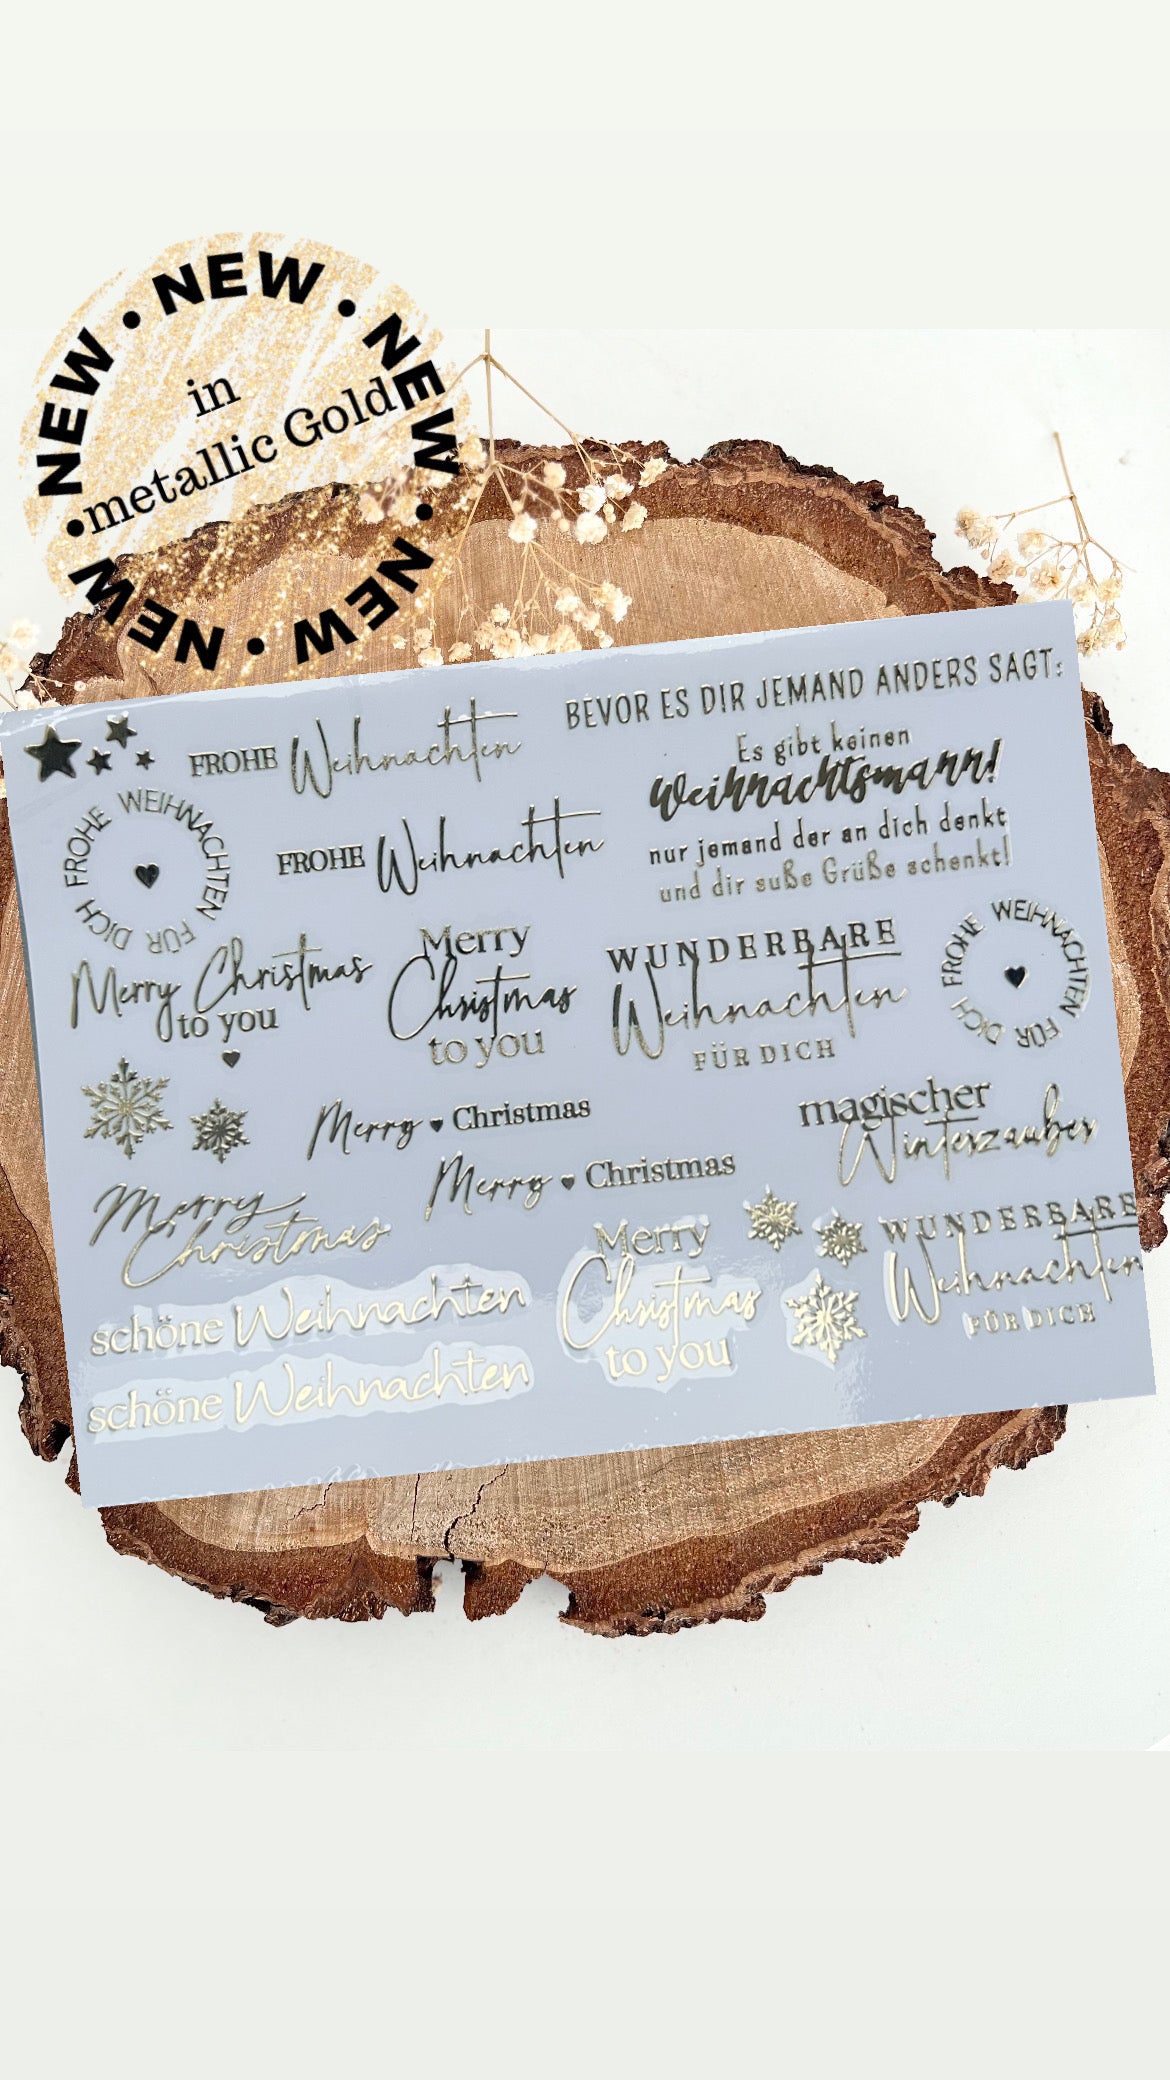 NEW • NEW • NEW • NEW • NEW • NEW •
in
metallic Gold
FROHE Weihnachten
BEVOR ES DIR JEMAND ANDERS SAGT:
Es gibt keinen
Weihnachtsmann!
nur jemand der an dich denkt
und dir suße Grüße schenkt!
FROHE WEIHNACHTEN FÜR DICH
FROHE Weihnachten
Merry Christmas
to you
Merry
Christmas
to you
WUNDERBARE
Weihnachten
FÜR DICH
FROHE WEIHNACHTEN FÜR DICH
Merry Christmas
Merry Christmas
magischer
Winterzauber
Merry
Christmas
Merry
Christmas
to you
WUNDERBARE
Weihnachten
FÜR DICH
schöne Weihnachten
schöne Weihnachten